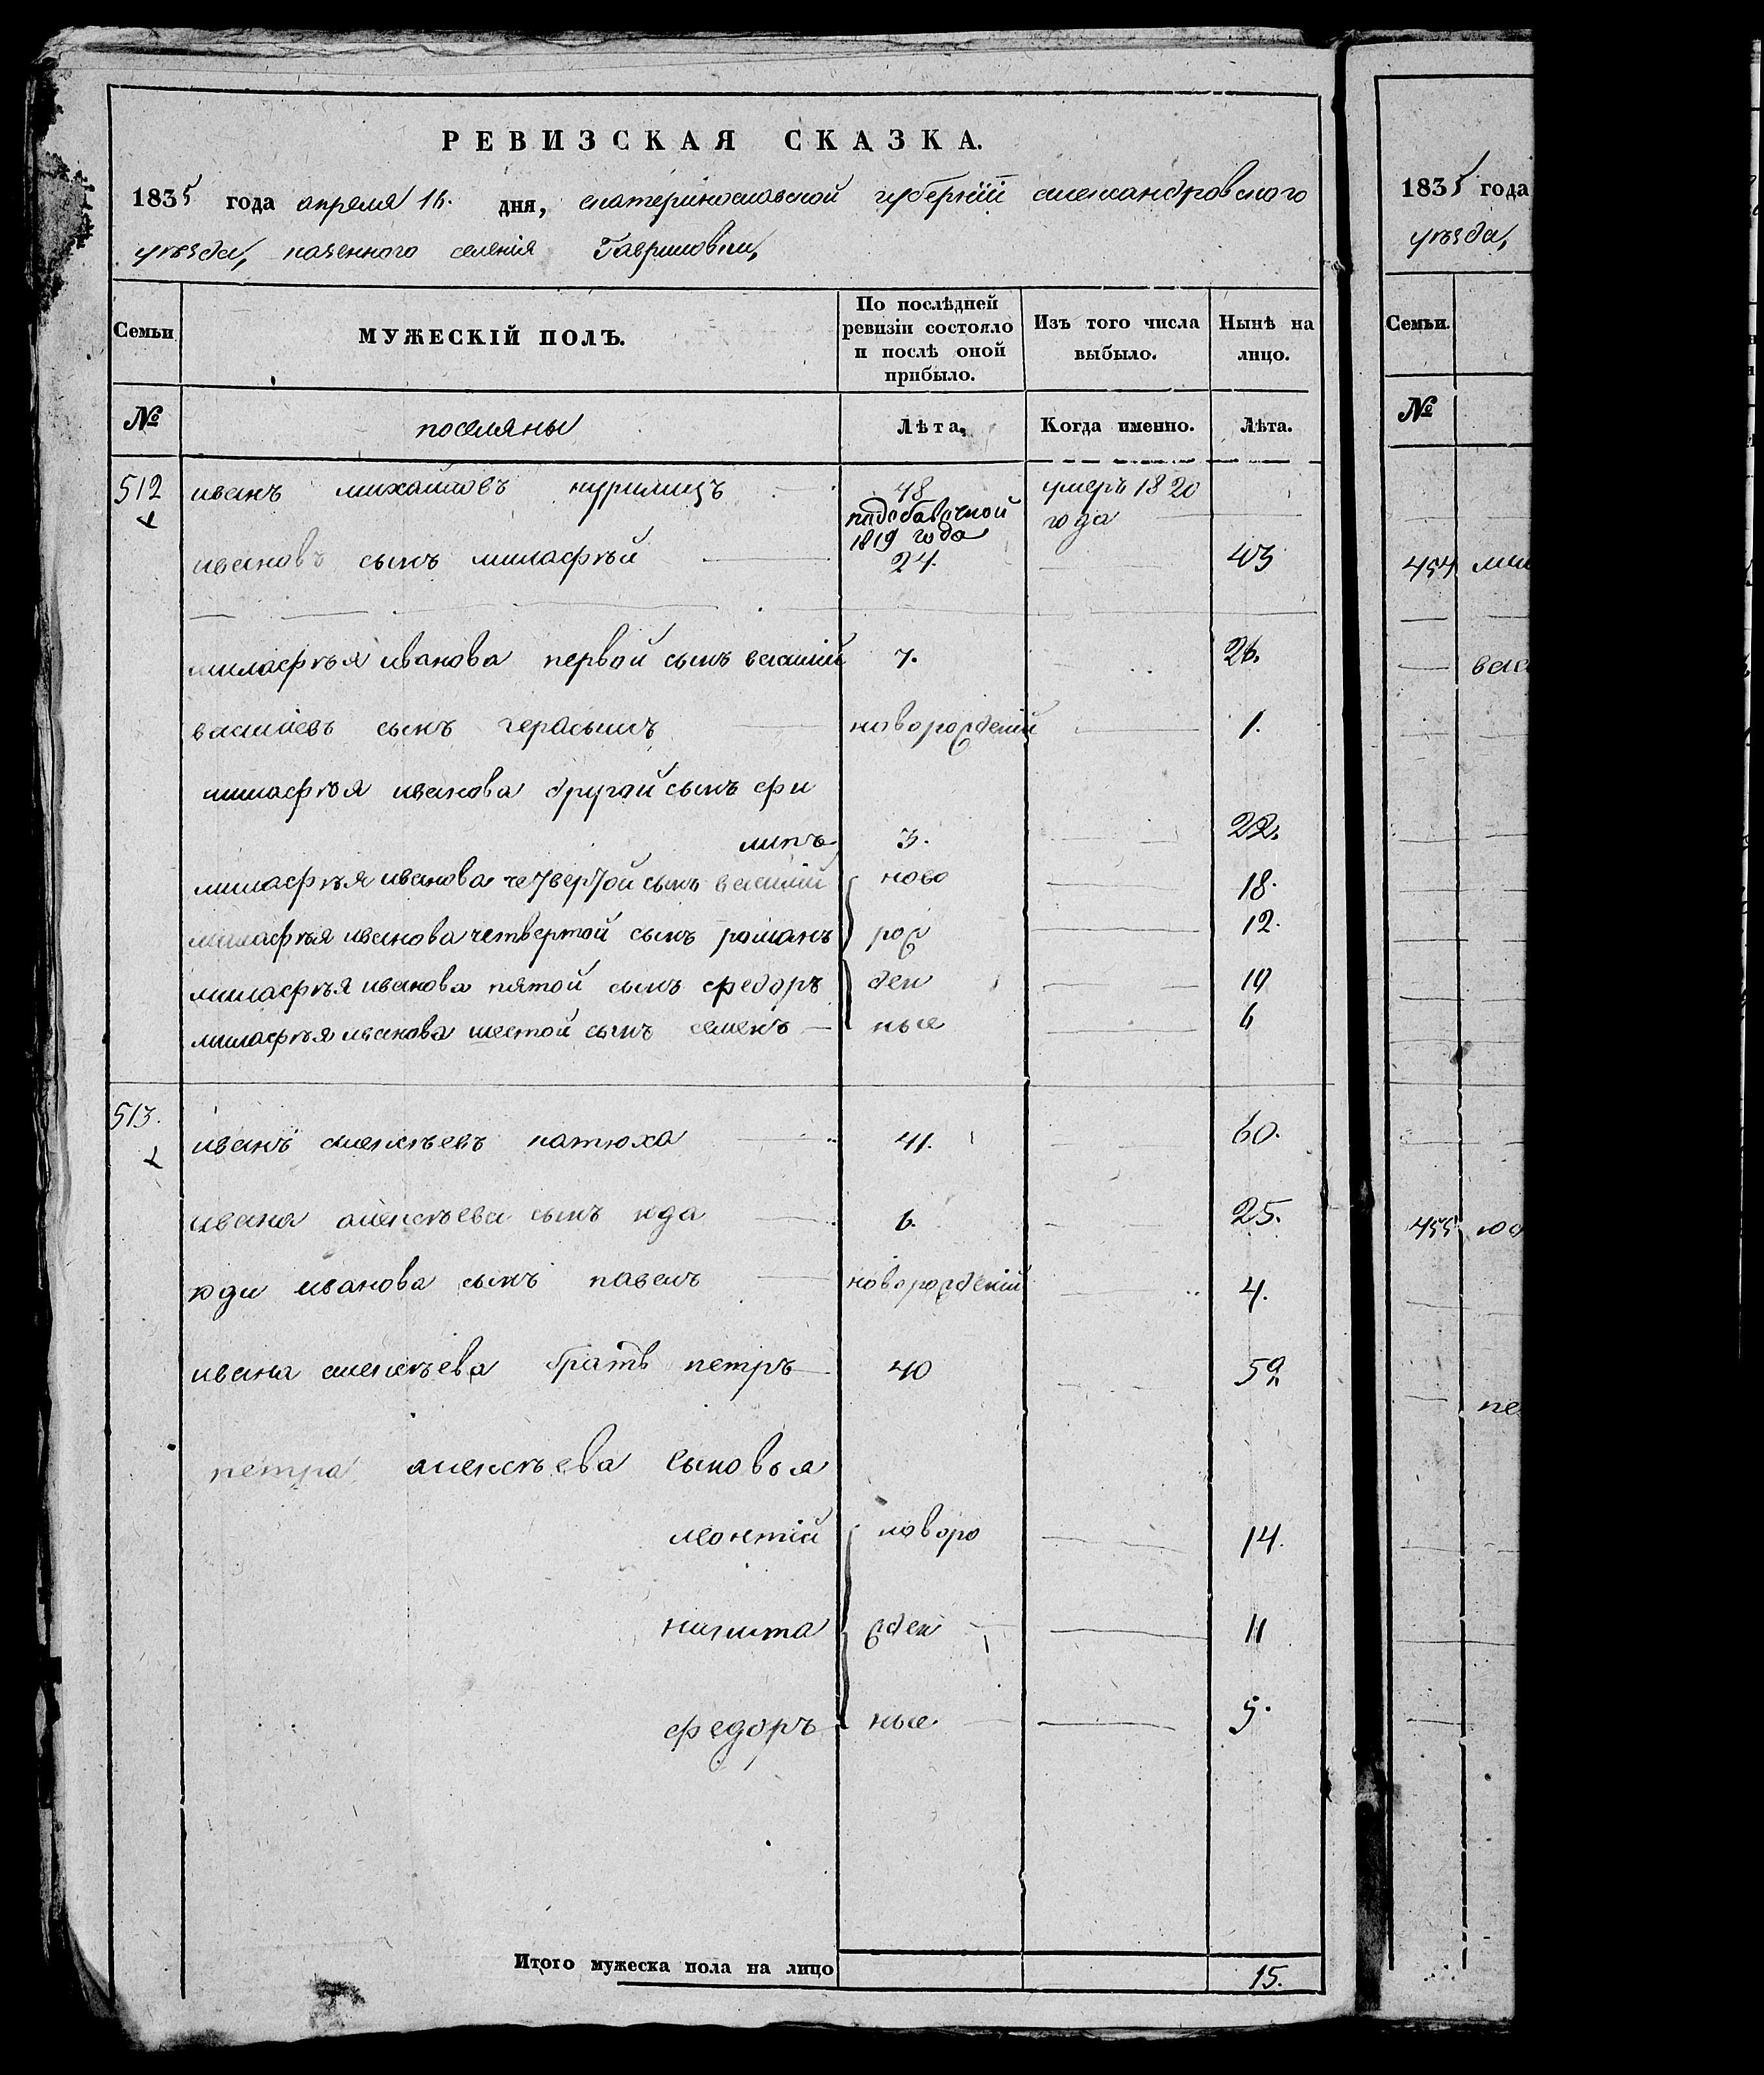 РЕВИЗСКАЯ СКАЗКА.
1835 года апреля 16. дня, екатеринославской губернїи александровского
уѣзда, казенного селенія Гавриловки,
Семьи
МУЖЕСКІЙ ПОЛЪ.
По послѣдней ревизіи состояло и послѣ оной прибыло.
Изъ того числа выбыло.
Нынѣ на лицо.
№ поселяны Лѣта, Когда именно. Лѣта.
512 иванъ михайловъ 48 умеръ 1820
года
подобавочной
1819 года
ивановъ сынъ милафѣй 24. 43
милафѣя иванова первой сынъ василій 7. 26.
василіевъ сынъ герасымъ новорожденій 1.
милафѣя иванова другой сынъ фи
липъ 3. 22.
милафѣя иванова четвертой сынъ василий ново 18.
милафѣя иванова четвертой сынъ романъ рож 12.
милафѣя иванова пятой сынъ федоръ ден 10
милафѣя иванова шестой сынъ семенъ ные 6
513. иванъ алексѣевъ катюха 41. 60.
ивана алексѣева сынъ юда 6. 25.
юди иванова сынъ павелъ новорожденій 4.
ивана алексѣева братъ петръ 40 59
петра алексѣева сыновья
леонтій новоро 14.
никита жден 11
федоръ ные. 5.
Итого мужеска пола на лицо 15.
1835 года
уѣзда,
Семьи.
№
454
455